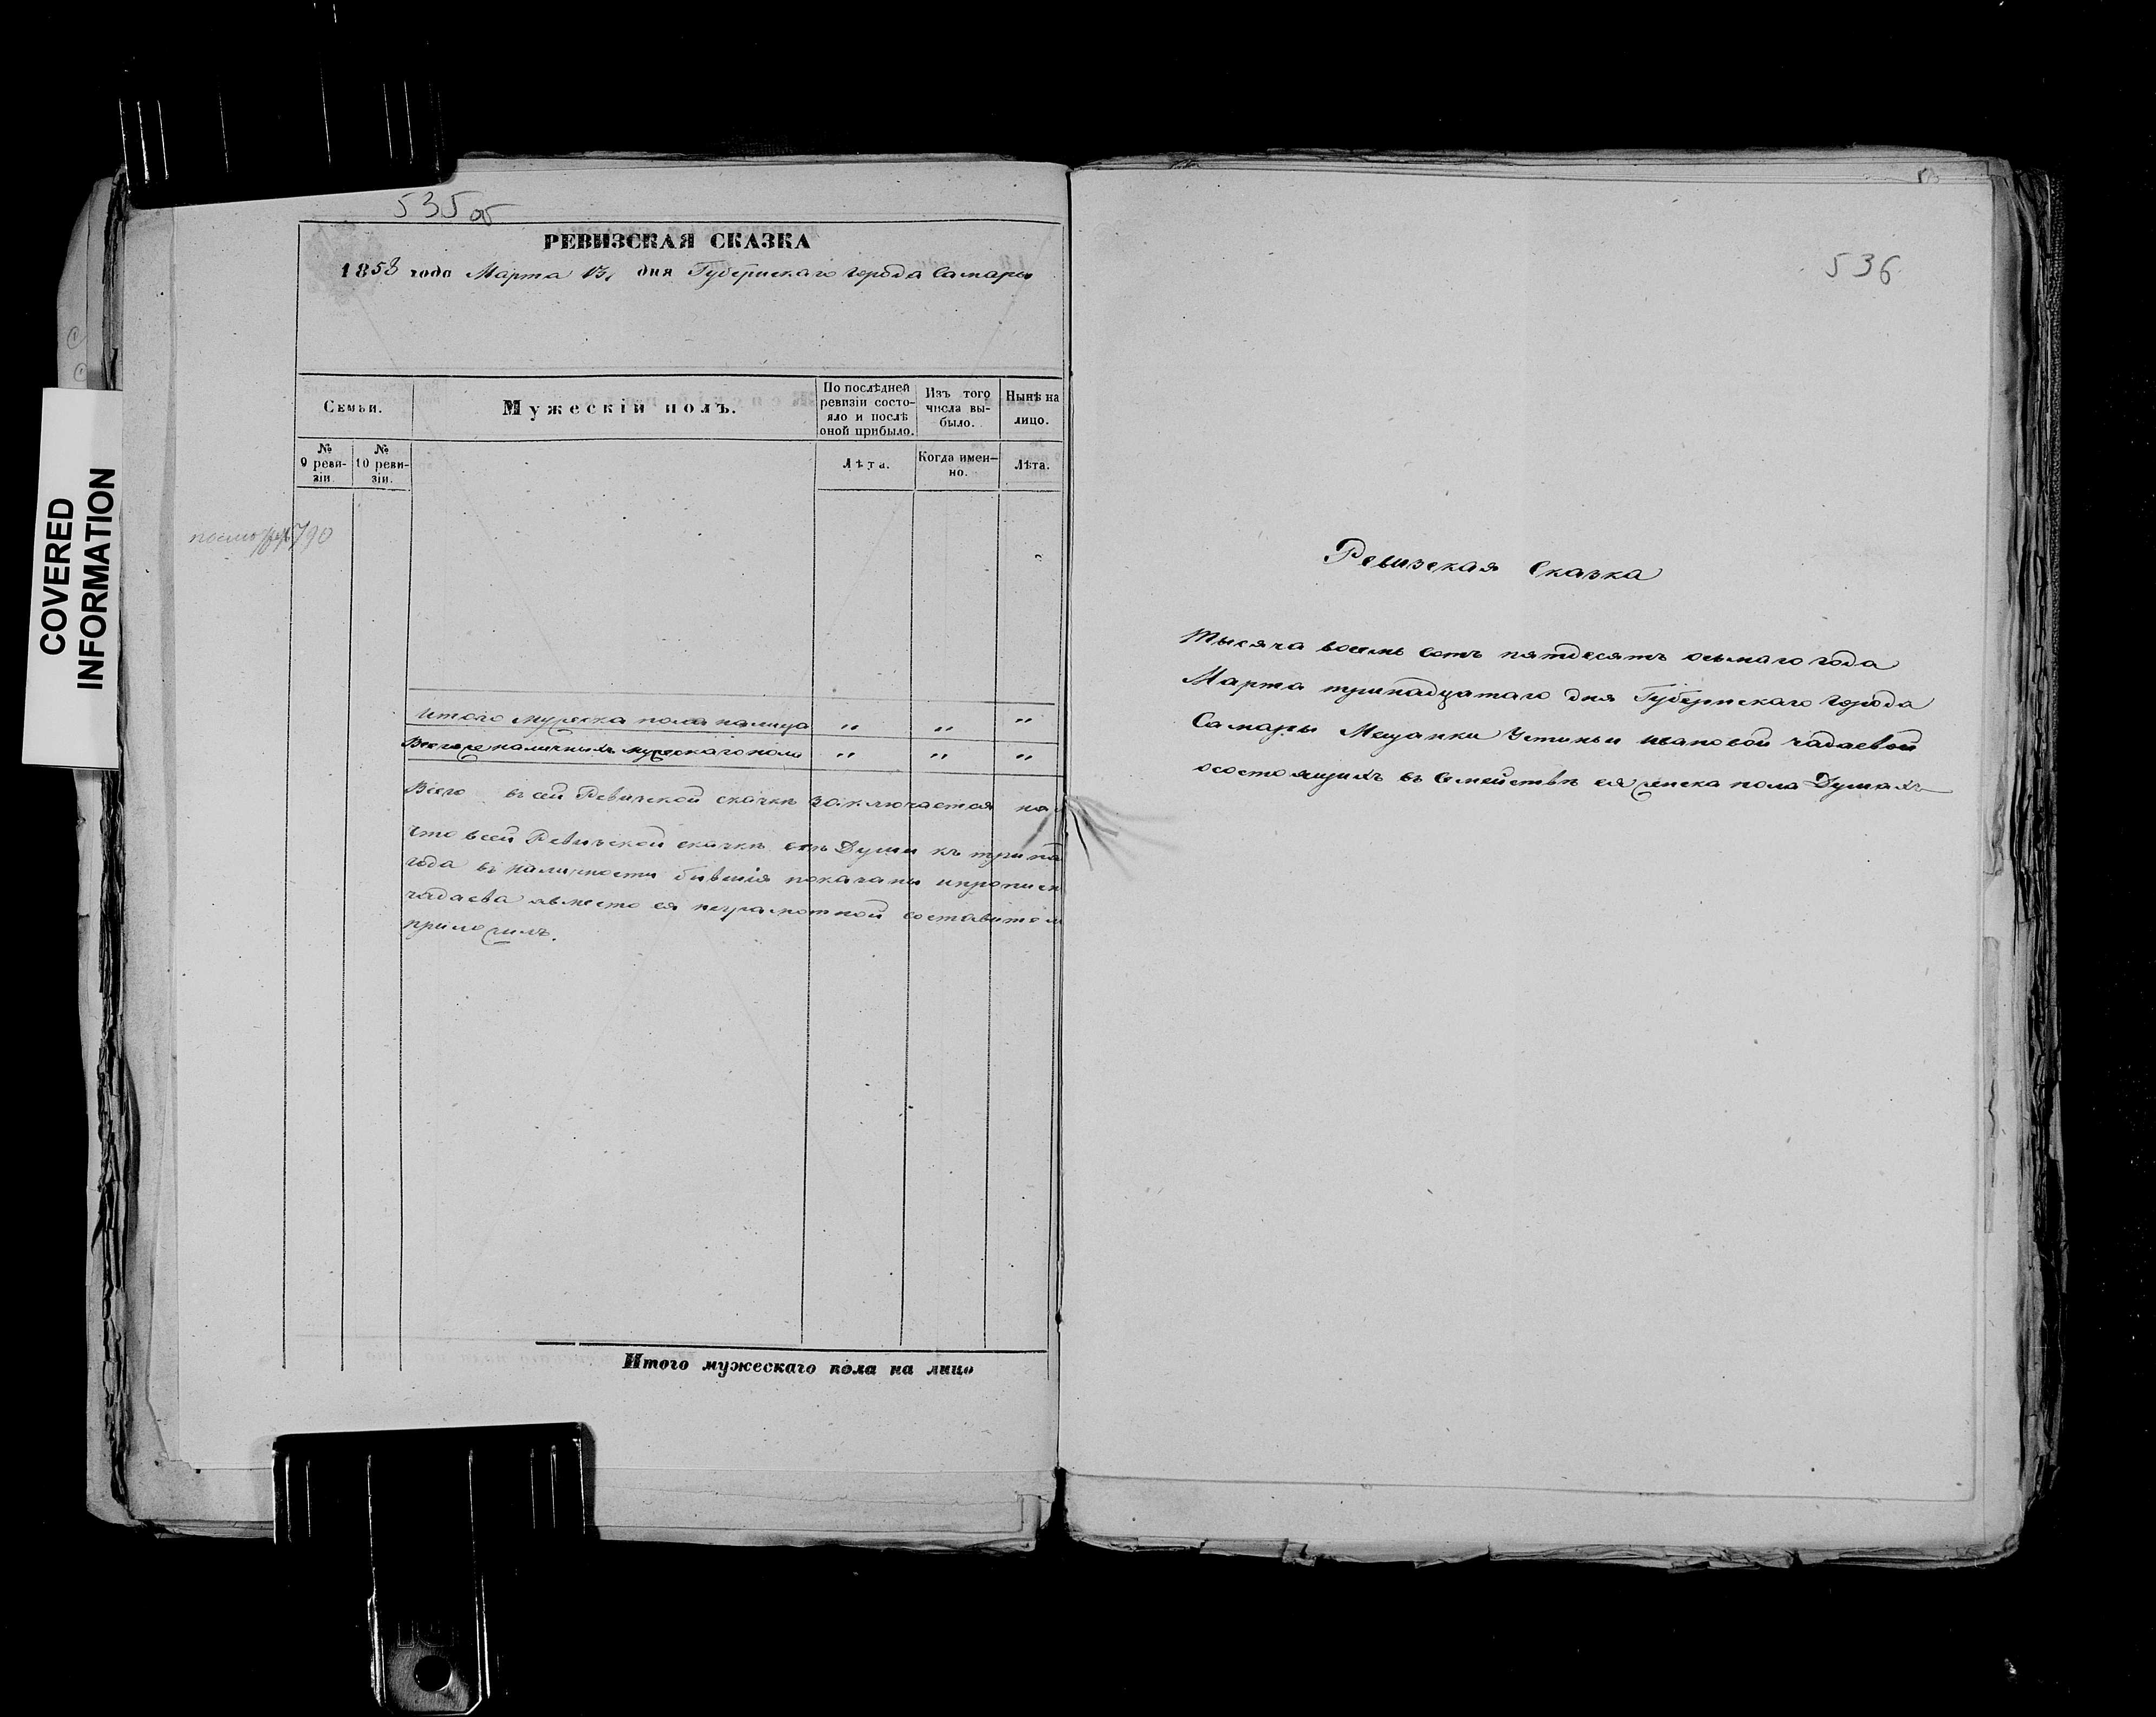 535 об
РЕВИЗСКАЯ СКАЗКА
1858 года Марта 13 дня Губернскаго города Самары
Семьи.
Мужескій полъ.
По послѣдней ревизіи состояло и послѣ оной прибыло.
Изъ того числа выбыло.
Нынѣ на лицо.
№ 9 ревизіи.
№ 10 ревизіи.
Лѣта.
Когда именно.
Лѣта.
790
Итого мужеска пола налицо " " "
Всего наличныхъ мужескаго пола " " "
Всего въ сей Ревизской сказкѣ заключается на
что всей Ревизской сказкѣ всѣ Души къ трина
года въ наличности бывшія показаны и прописн
Чадаева авместо ея неграмотной составител
приложилъ.
Итого мужескаго пола на лицо
COVERED
INFORMATION
536
Ревизская Сказка
Тысяча восемь сотъ пятдесятъ осьмаго года
Марта тринадцатаго дня Губернскаго города
Самары Мещанки Устиньи Ивановой Чадаевой
осостоящихъ въ Семействѣ ея женска пола Душахъ